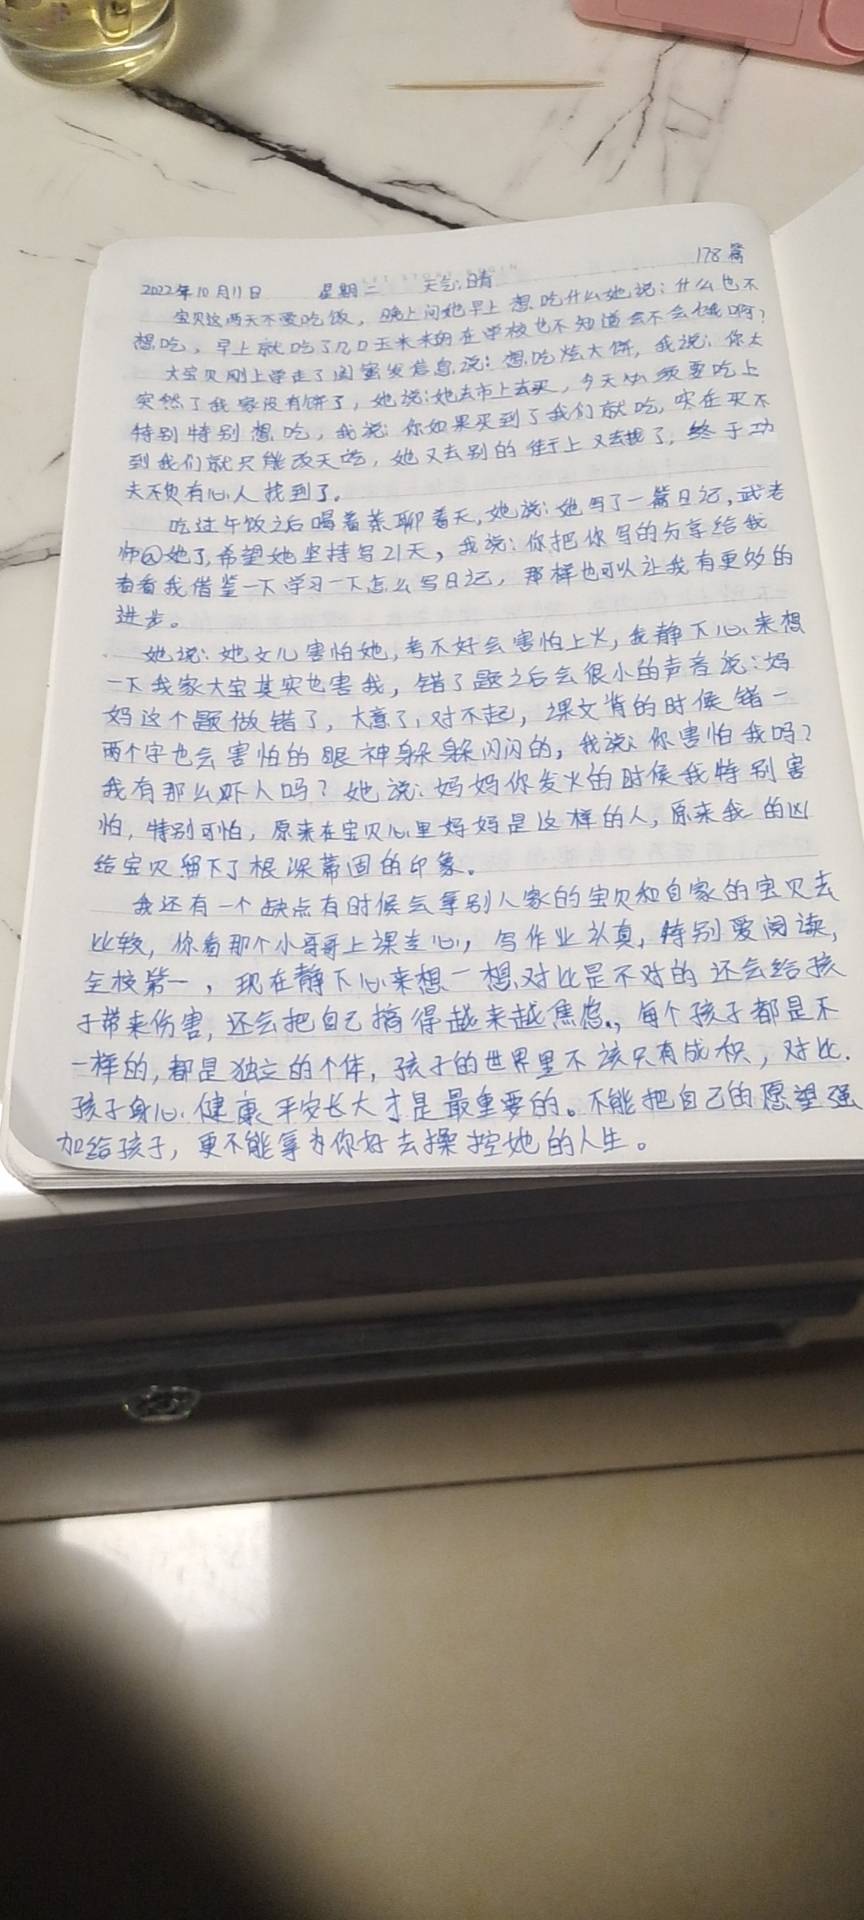 178篇
2022年10月11日 星期二 天气:晴
宝贝这两天不爱吃饭，晚上问她早上想吃什么她说：什么也不
想吃，早上就吃了几口玉米来的在学校也不知道会不会饿啊？
大宝贝刚上学走了闺蜜发信息说：想吃炝大饼，我说：你太
突然了我家没有饼了，她说：她去市上去买，今天必须要吃上
特别特别想吃，我说：你如果买到了我们就吃，实在买不
到我们就只能改天吃，她又去别的街上又去找了，终于功
夫不负有心人找到了。
吃过午饭之后喝着茶聊着天，她说：她写了一篇日记，武老
师@她了，希望她坚持写21天，我说：你把你写的分享给我
看看我借鉴一下学习一下怎么写日记，那样也可以让我有更多的
进步。
她说：她女儿害怕她，考不好会害怕上火，我静下心来想
一下我家大宝其实也害我，错了题之后会很小的声音说：妈
妈这个题做错了，大意了，对不起，课文背的时候错一
两个字也会害怕的眼神躲躲闪闪的，我说：你害怕我吗？
我有那么吓人吗？她说：妈妈你发火的时候我特别害
怕，特别可怕，原来在宝贝心里妈妈是这样的人，原来我的凶
给宝贝留下了根深蒂固的印象。
我还有一个缺点有时候会拿别人家的宝贝和自家的宝贝去
比较，你看那个小哥哥上课走心，写作业认真，特别爱阅读，
全校第一，现在静下心来想一想，对比是不对的还会给孩
子带来伤害，还会把自己搞得越来越焦虑，每个孩子都是不
一样的，都是独立的个体，孩子的世界里不该只有成积，对比.
孩子身心健康平安长大才是最重要的。不能把自己的愿望强
加给孩子，更不能拿为你好去操控她的人生。